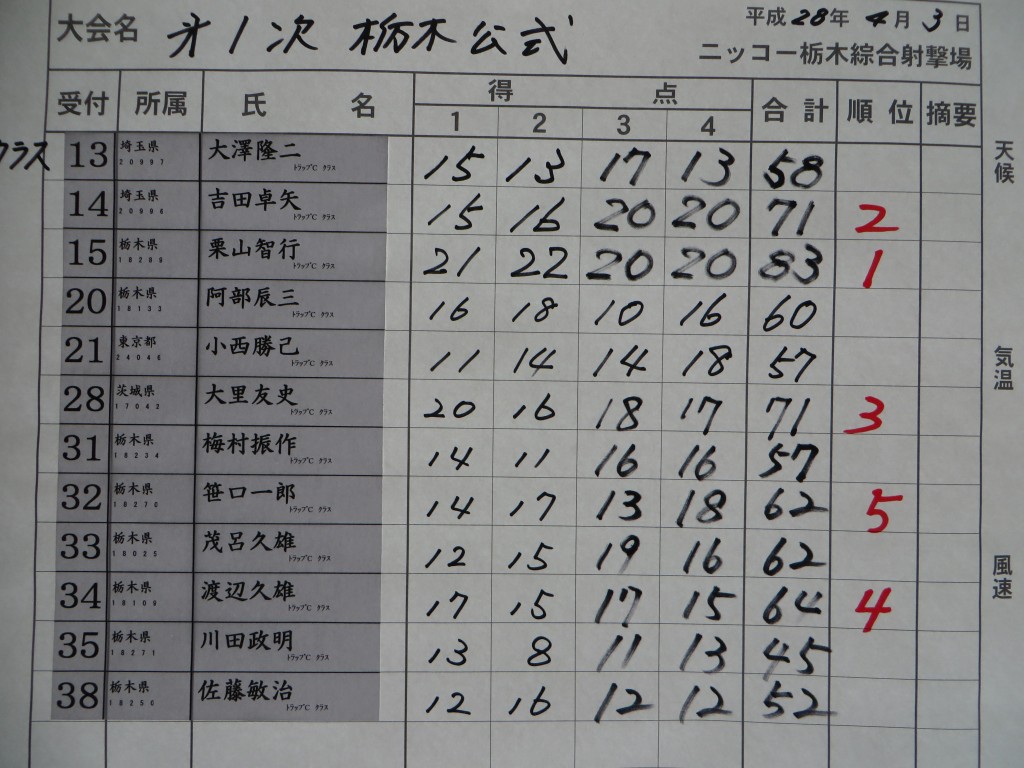 大会名 オ1次 栃木公式 平成28年 4月 3日
ニッコー栃木綜合射撃場
受付 所属 氏名 得点 合計 順位 摘要
1 2 3 4
クラス 13 埼玉県 20997 大澤隆二 トラップC クラス 15 13 17 13 58
14 埼玉県 20996 吉田卓矢 トラップC クラス 15 16 20 20 71 2
15 栃木県 18289 栗山智行 トラップC クラス 21 22 20 20 83 1
20 栃木県 18133 阿部辰三 トラップC クラス 16 18 10 16 60
21 東京都 24046 小西勝己 トラップC クラス 11 14 14 18 57
28 茨城県 17042 大里友史 トラップC クラス 20 16 18 17 71 3
31 栃木県 18234 梅村振作 トラップC クラス 14 11 16 16 57
32 栃木県 18270 笹口一郎 トラップC クラス 14 17 13 18 62 5
33 栃木県 18025 茂呂久雄 トラップC クラス 12 15 19 16 62
34 栃木県 18109 渡辺久雄 トラップC クラス 17 15 17 15 64 4
35 栃木県 18271 川田政明 トラップC クラス 13 8 11 13 45
38 栃木県 18250 佐藤敏治 トラップC クラス 12 16 12 12 52
天候
気温
風速